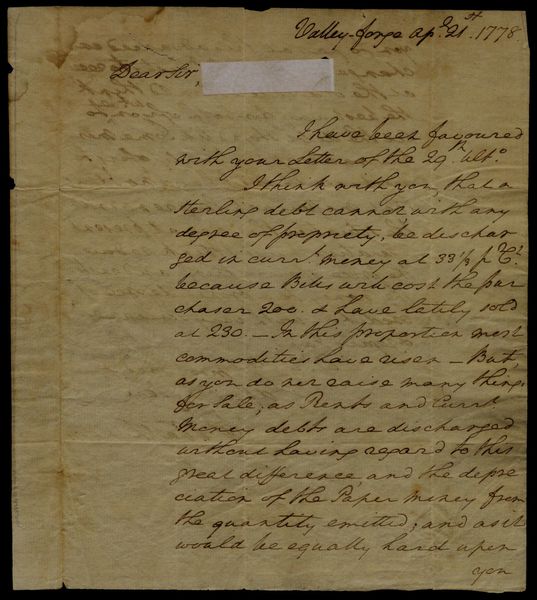 Valley-forge Apl. 21st. 1778
Dear Sir,
I have been favoured
with your Letter of the 29th Ulto.
I think with you that a
sterling debt cannot with any
degree of propriety, be dischar
ged in currt. money at 33⅓ p Ct.
because Bills will cost the pur
chaser 200. & have lately sold
at 230. — In this proportion most
commodities have risen — But,
as you do not raise many things
for Sale; as Rents and Currt.
Money debts are discharged
without having regard to this
great difference and the depre
ciation of the Paper money from
the quantity emitted; and as it
would be equally hard upon
you